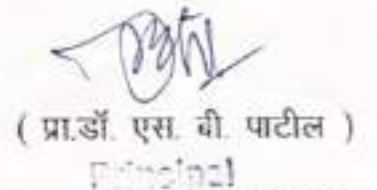 ( प्रा.डॉ. एस. बी. पाटील )
Principal